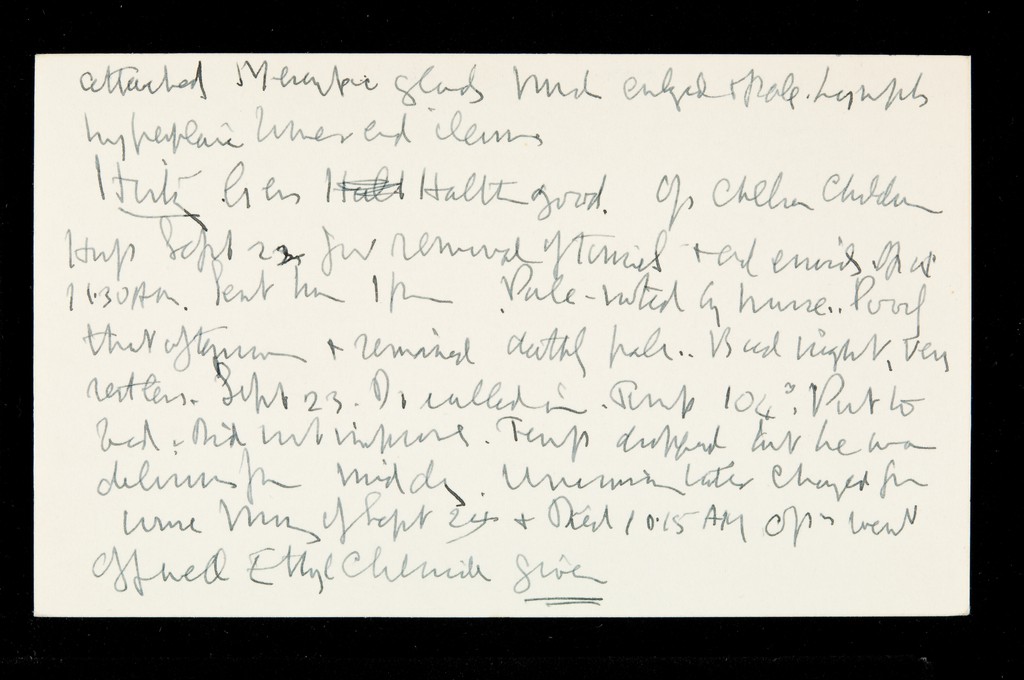 attached Mesenteric glands much enlgd & Pale. Lymph
hyperplasia lower end ileum
History. Gen Health good. Op Chelsea Childrens
Hosp Sept 23 for removal of tonsils & adenoids. Op at
11.30 AM. Sent home 1 pm. Pale - noted by nurse.. Poorly
that afternoon & remained deathly pale.. Bad night, very
restless. Sept 23. Dr called in. Temp 104°. Put to
bed. Did not improve. Temp dropped but he was
delirious from midday. Unconscious later Changed for
worse Morning of Sept 24 & Died 10.15 AM Opn went
off well Ethyl Chloride given